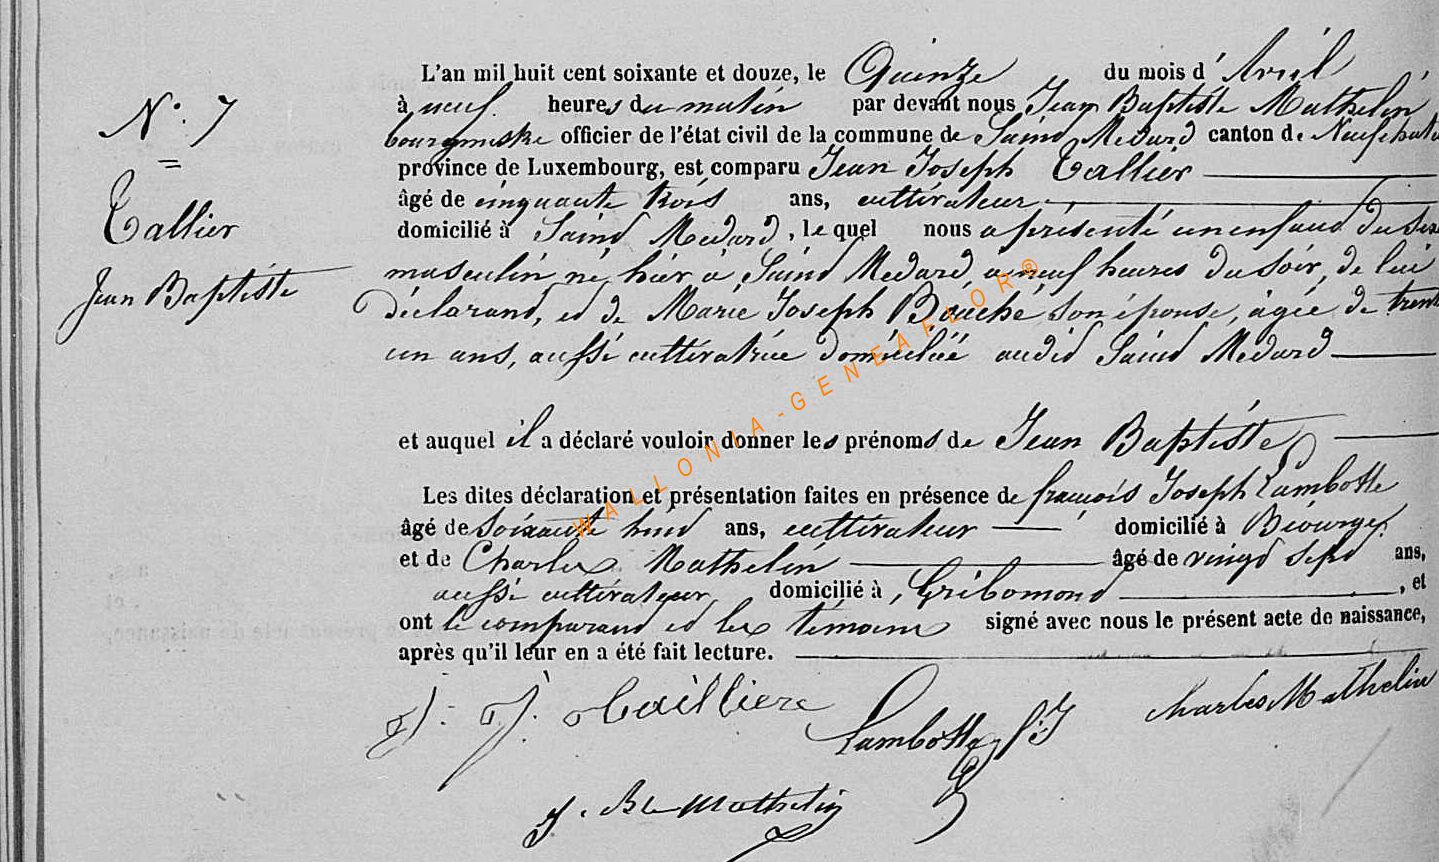 N°. 7
Tallier
Jean Baptiste
L'an mil huit cent soixante et douze, le Quinze du mois d' Avril
à neuf heures du matin par devant nous Jean Baptiste Mathelin
bourgmestre officier de l'état civil de la commune de Saint Médard canton de Neufchateau
province de Luxembourg, est comparu Jean Joseph Tallier
âgé de cinquante trois ans, cultivateur
domicilié à Saint Médard, le quel nous a présenté un enfant du sexe
masculin né hier à Saint Médard, à neuf heures du soir, de lui
déclarant, et de Marie Joseph Bouché son épouse, âgée de trente
un ans, aussi cultivatrice domiciliée audit Saint Médard
et auquel il a déclaré vouloir donner les prénoms de Jean Baptiste
Les dites déclaration et présentation faites en présence de françois Joseph Lambotte
âgé de soixante huit ans, cultivateur domicilié à Biourge
et de Charles Mathelin âgé de vingt sept ans,
aussi cultivateur domicilié à Gribomont, et
ont le comparant et les témoins signé avec nous le présent acte de naissance,
après qu'il leur en a été fait lecture.
J. J. tailliere
Lambotte f J
Charles Mathelin
J. Bte Mathelin
WALLONIA-GENEAFLOR®